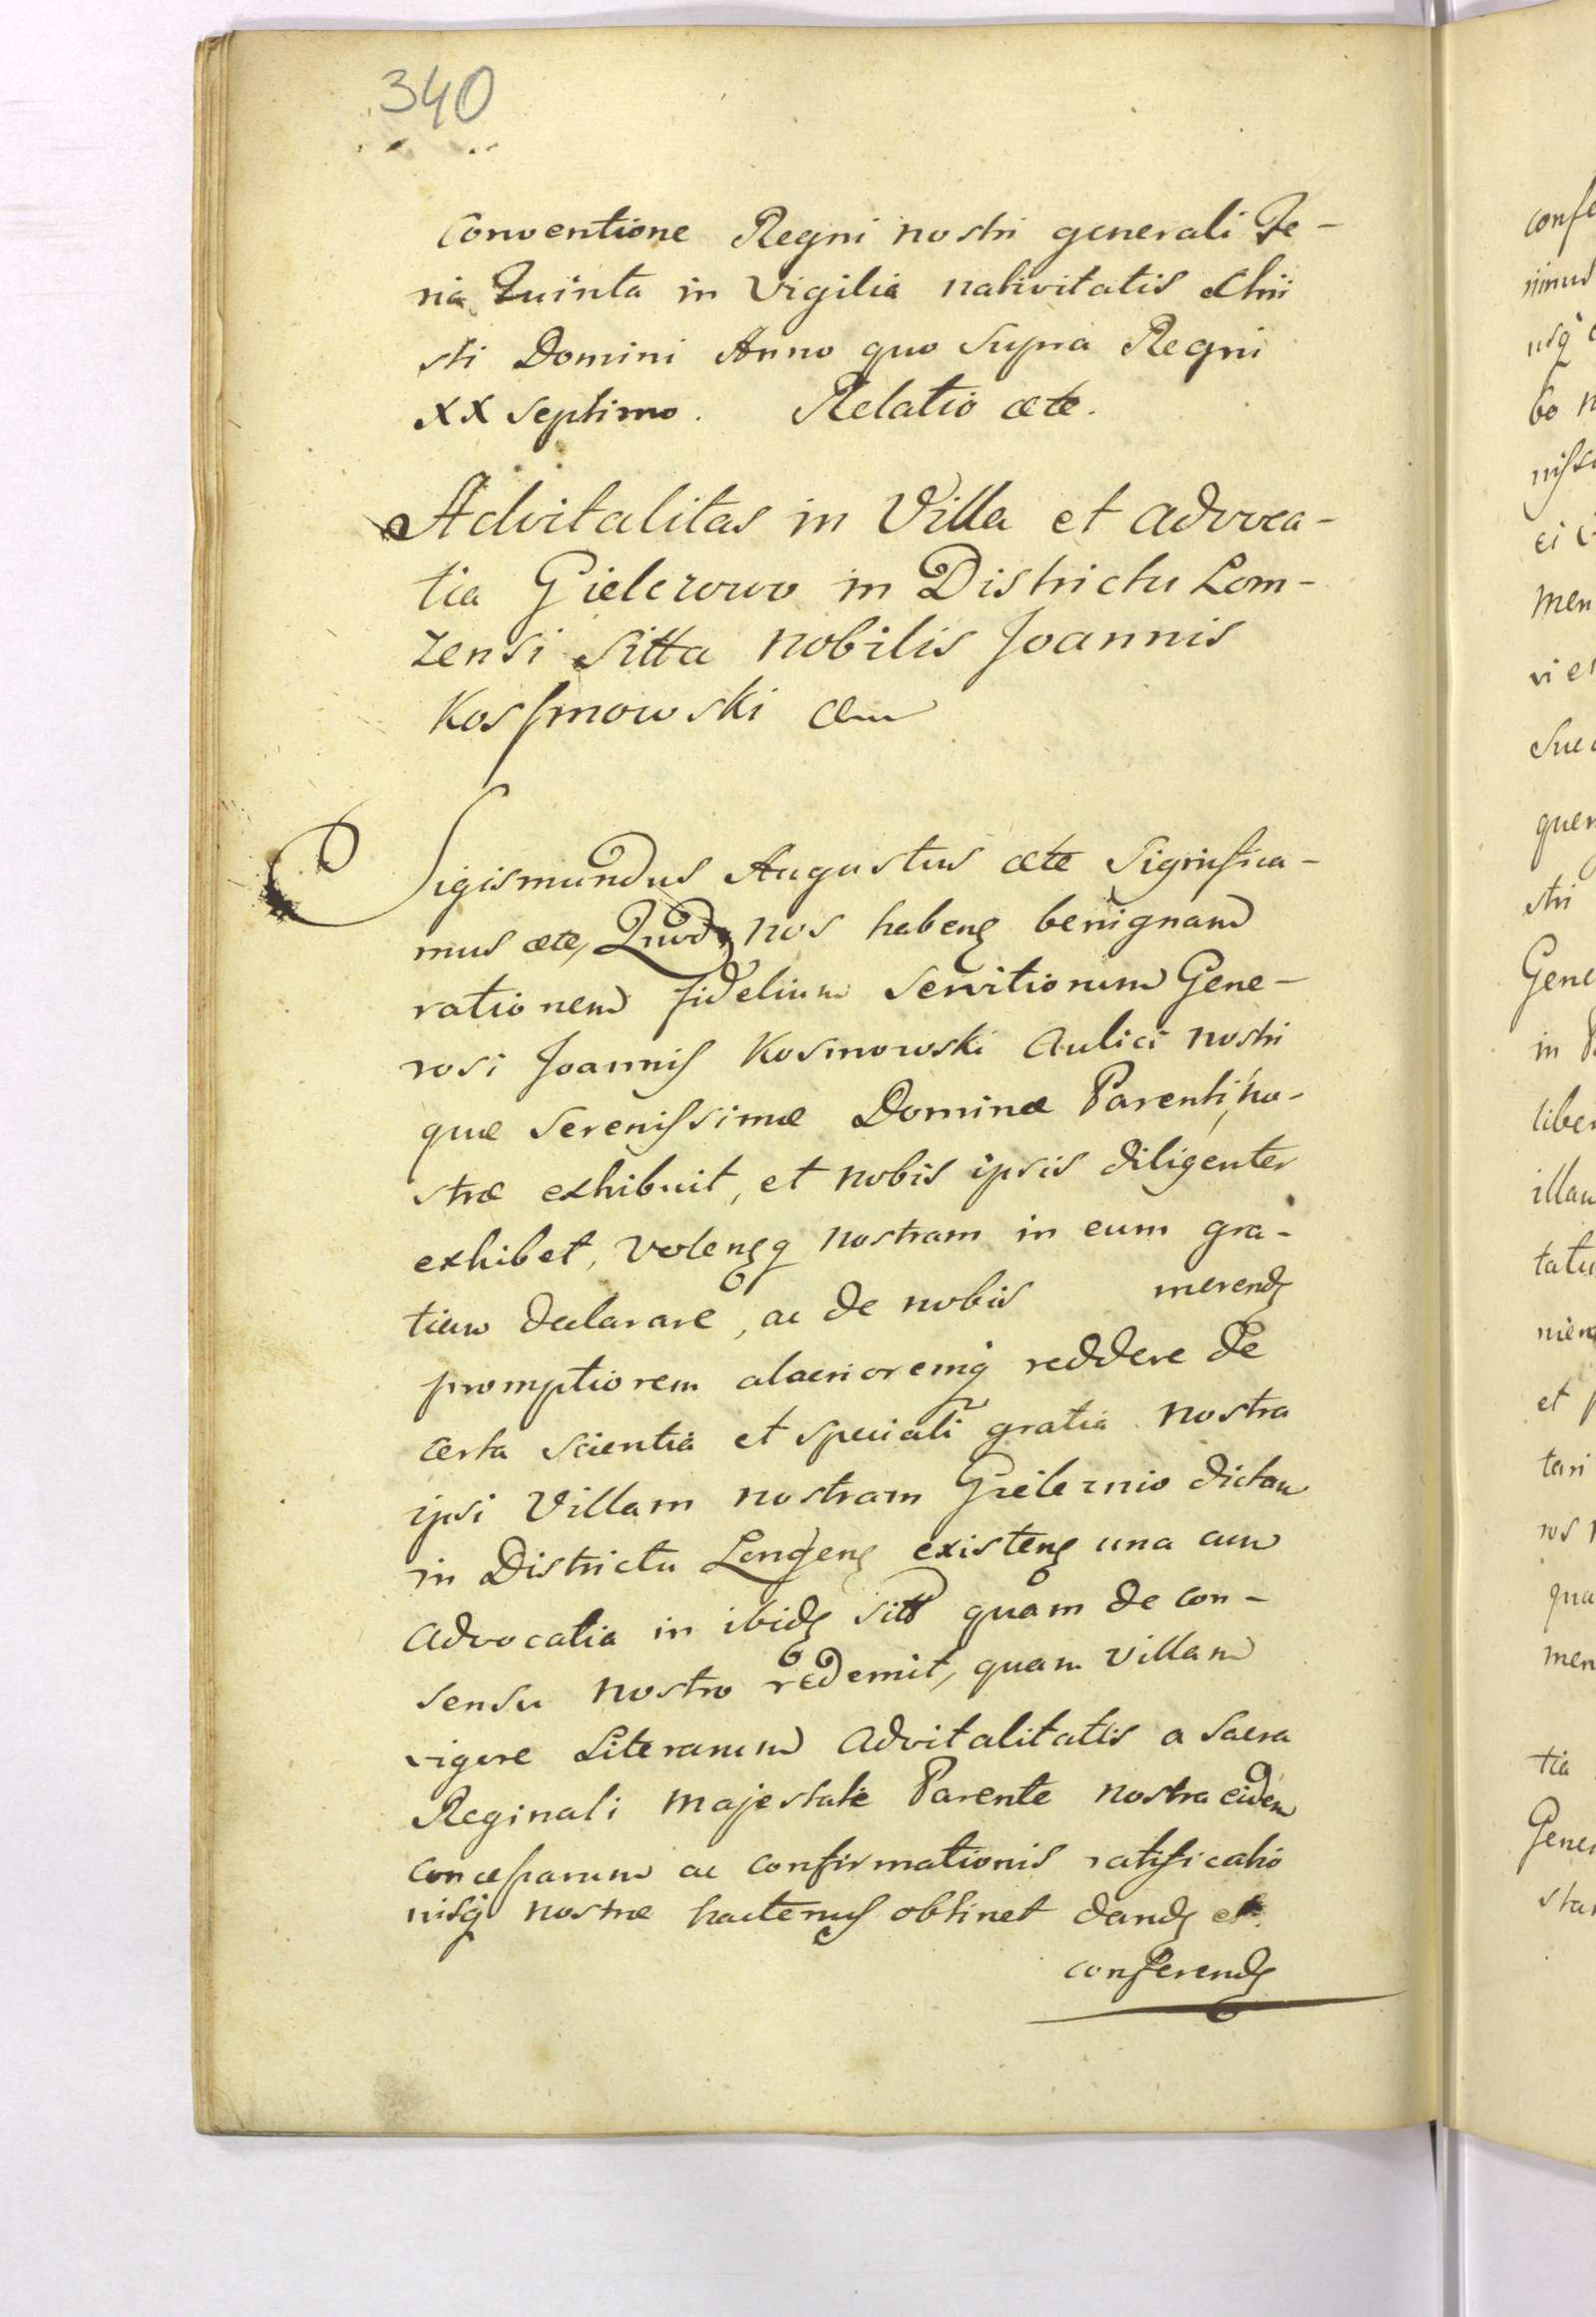 340
conventione Regni nostri generali Fe-
ria Quinta in Vigilia nativitatis Chri
sti Domini Anno quo Supra Regni
XX Septimo. Relatio cete.
Advitalitas in Villa et advoca-
tia Gielczowo in Districtu Lom-
zensi Sitta nobilis Joannis
Kossmowski
Sigismundus Augustus cete Significa-
mus cete, Quod nos habens benignam
rationem fidelium Servitiorum Gene-
rosi Joannis Kosmowski Aulici nostri
quæ Serenissimæ Dominæ Parenti, no-
stræ exhibuit, et nobis ipsis diligenter
exhibet, volensq nostram in eum gra-
tiam declarare, ac de nobis merend
promptiorem alacrioremq reddere de
certa scientia et speciali gratia nostra
ipsi Villam nostram dictam
in Districtu existen una cum
Advocatia in ibid sitt quam de con-
sensu nostro redemit, quam villam
vigore Literarum Advitalitatis a Sacra
Reginali Majestate Parente nostra eidem
concessarum ac confirmationis ratificatio
nisq nostræ hactenus obtinet dand et
conferend
confe
rimus
usq
bo n
men
vi e
Sue
quer
stri
Gene
in
liber
illam
tatu
et
tari
qua
men
tia
Gener
sta